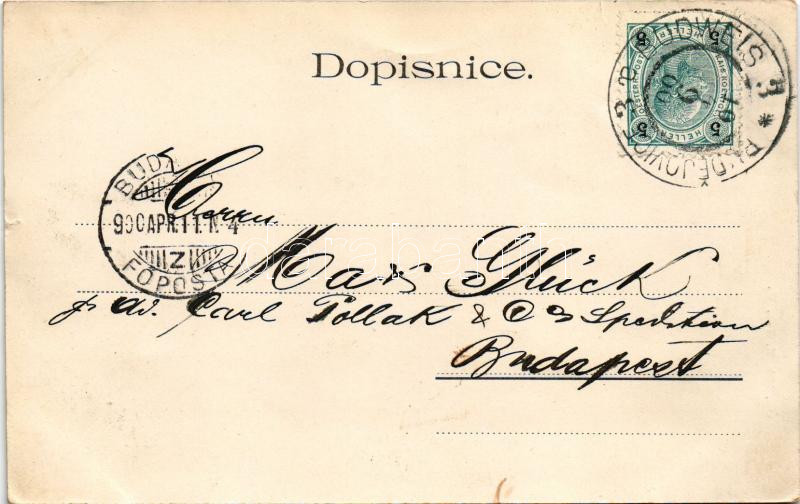 Dopisnice.
BUDWEIS 3
BUDĚJOVICE 3
5 HELLER 5
BUDA
900 APR. 11. N. 4
Z
FŐPOSTA
Herrn
Max Glück
p. Ad. Carl Pollak & Co Spedition
Budapest